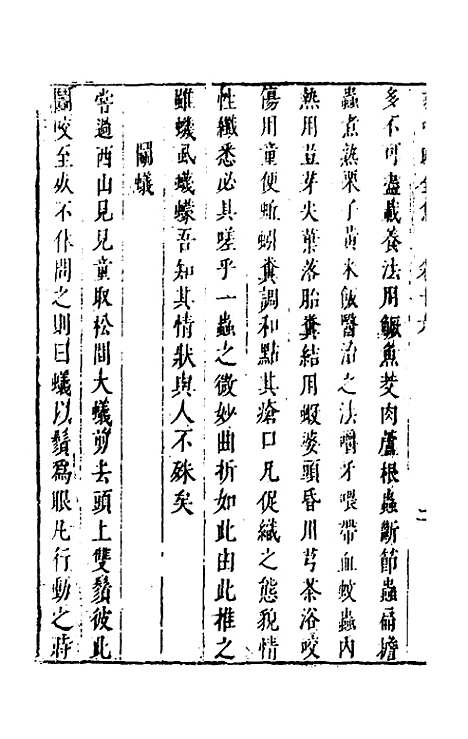 多不可盡載養法用鱖魚茭肉蘆根蟲斷節蟲扁擔
蟲煮熟栗子黃米飯醫治之法嚼牙喂帶血蚊蟲內
熱用荳芽尖葉落胎糞結用蝦婆頭昏川芎茶浴咬
傷用童便蚯蚓糞調和點其瘡口凡促織之態貌情
性纖悉必具嗟乎一蟲之微妙曲折如此由此推之
雖蟣虱蟻蠓吾知其情狀與人不殊矣
鬭蟻
嘗過西山見兒童取松間大蟻剪去頭上雙鬚彼此
鬭咬至死不休問之則曰蟻以鬚為眼凡行動之時